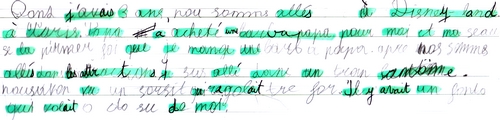 Qons j'avais 3 ans, nou somms allés à Disney land
à Paris. Papa a acheté un barba papa pour moi et ma seur
se la premier foi que je mange barba a papa. apre nos smms
allés dans les atractions. J sui allé dans un train fantome.
nous avon vu un souri qui rigolait tre for. Il y avait un fanto
qui volait o dsu de moi.